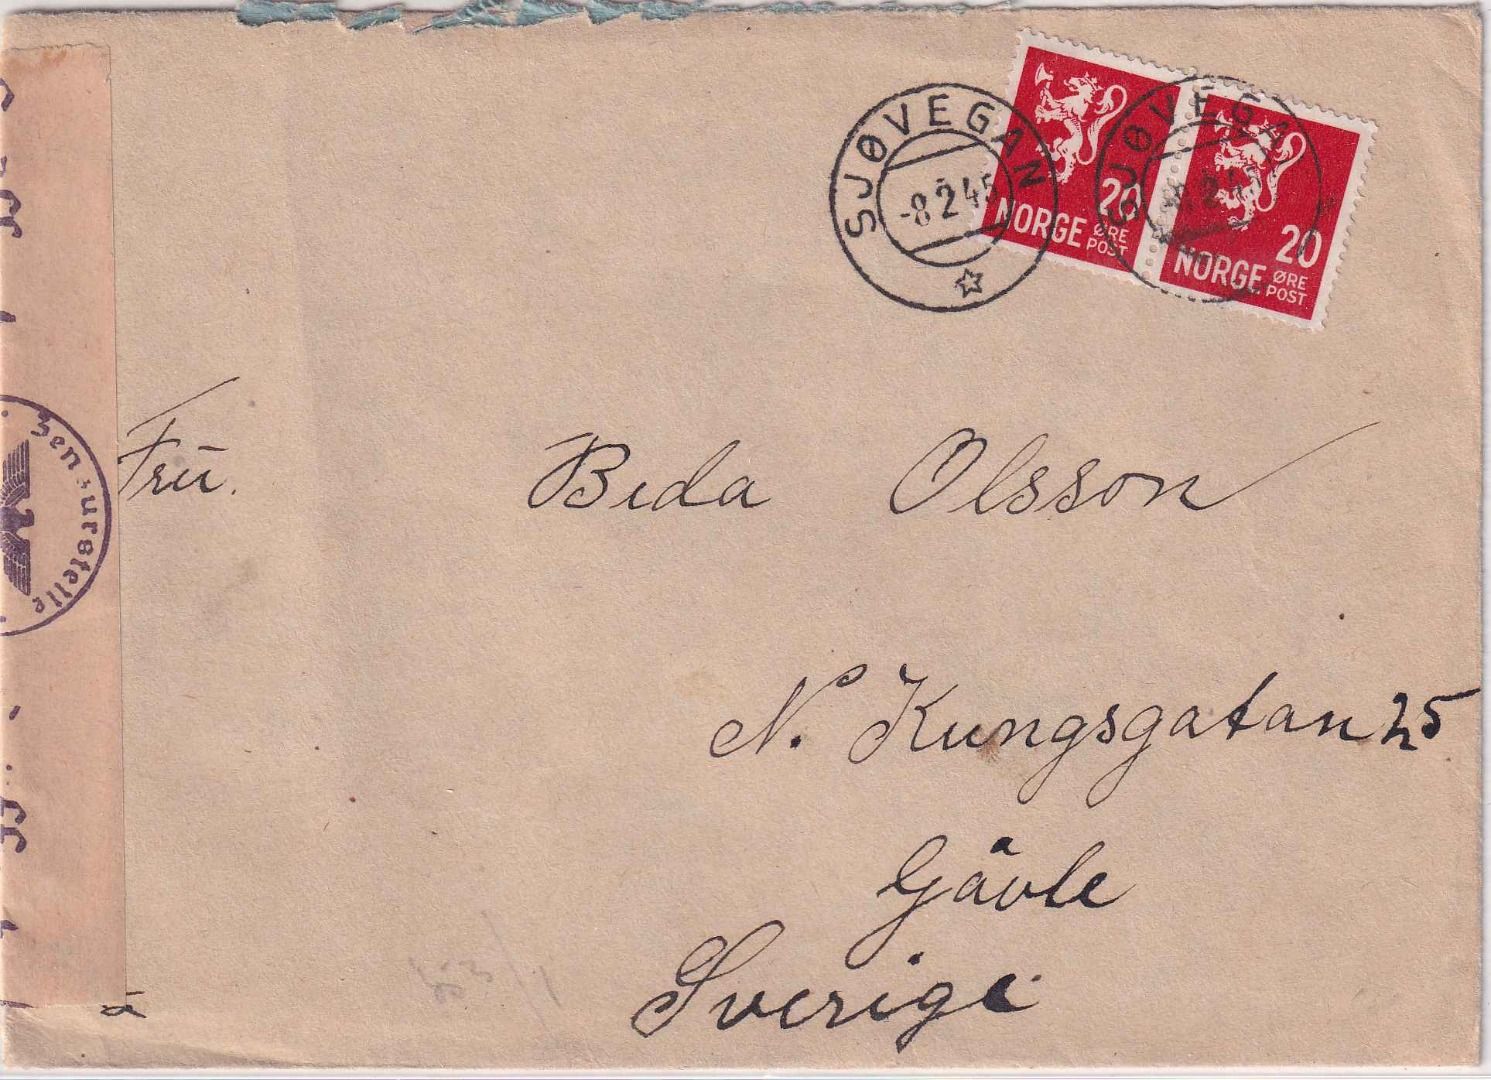 SJØVEGAN
-8 2 45
20
NORGE ØRE
POST
SJØVEGAN
-8 2 45
20
NORGE ØRE
POST
Zensurstelle
Fru. Beda Olsson
N. Kungsgatan 25
Gävle
Sverige
a